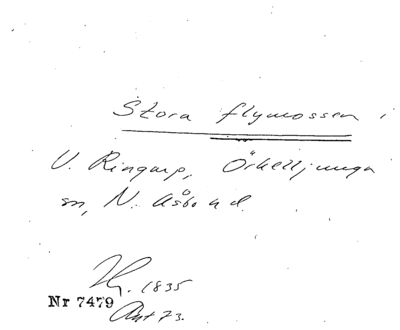 Stora flymossen i
V. Ringarp, Örkelljunga
sn, N. Åsbo hd.
Hg. 1835
Nr 7479
Akt 73.